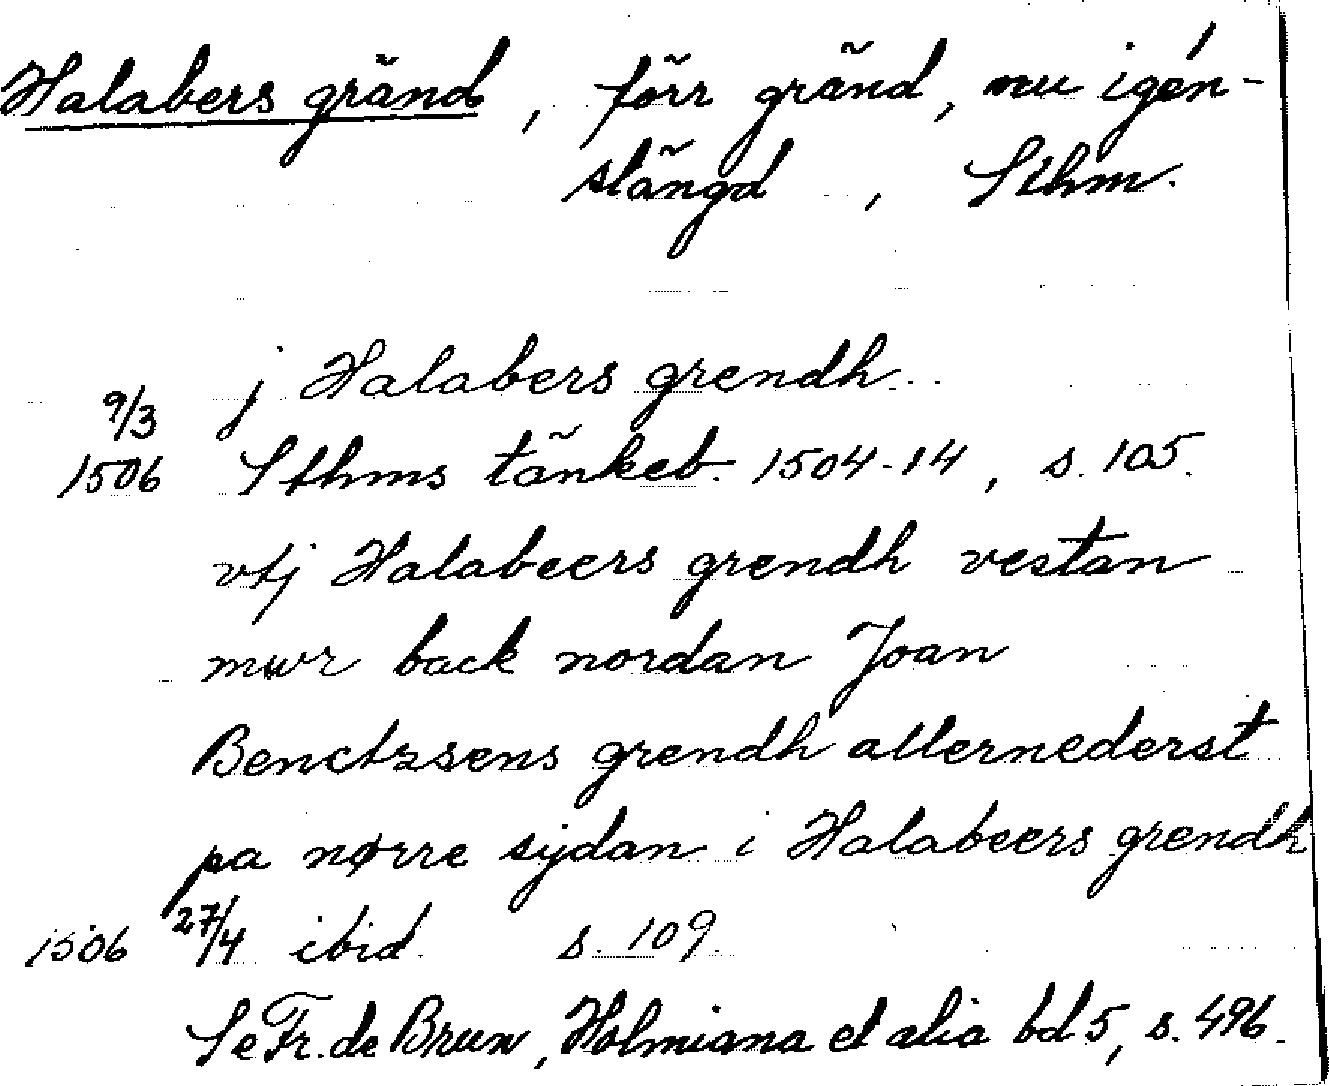 Halabers gränd, förr gränd, nu igen-
slängd, Sthm.
j Halabers grendh.
9/3
1506 Sthms tänkeb. 1504-14, s. 105.
vtj Halabeers grendh vestan
mwr back nordan Joan
Benctzsens grendh allernederst
pa nørre sijdan i Halabeers grendh
1506 27/4 ibid. s. 109.
Se Fr. de Brun, Holmiana et alia bd 5, s. 496.